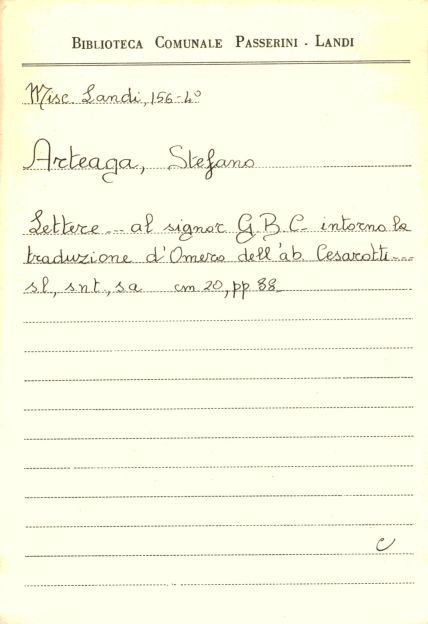 BIBLIOTECA COMUNALE PASSERINI - LANDI
Misc. Landi, 156-4º
Arteaga, Stefano
Lettere ... al signor G.B.C. intorno la
traduzione d'Omero dell'ab. Cesarotti....
s.l., s.n.t., s.a. cm 20, pp 88_
C